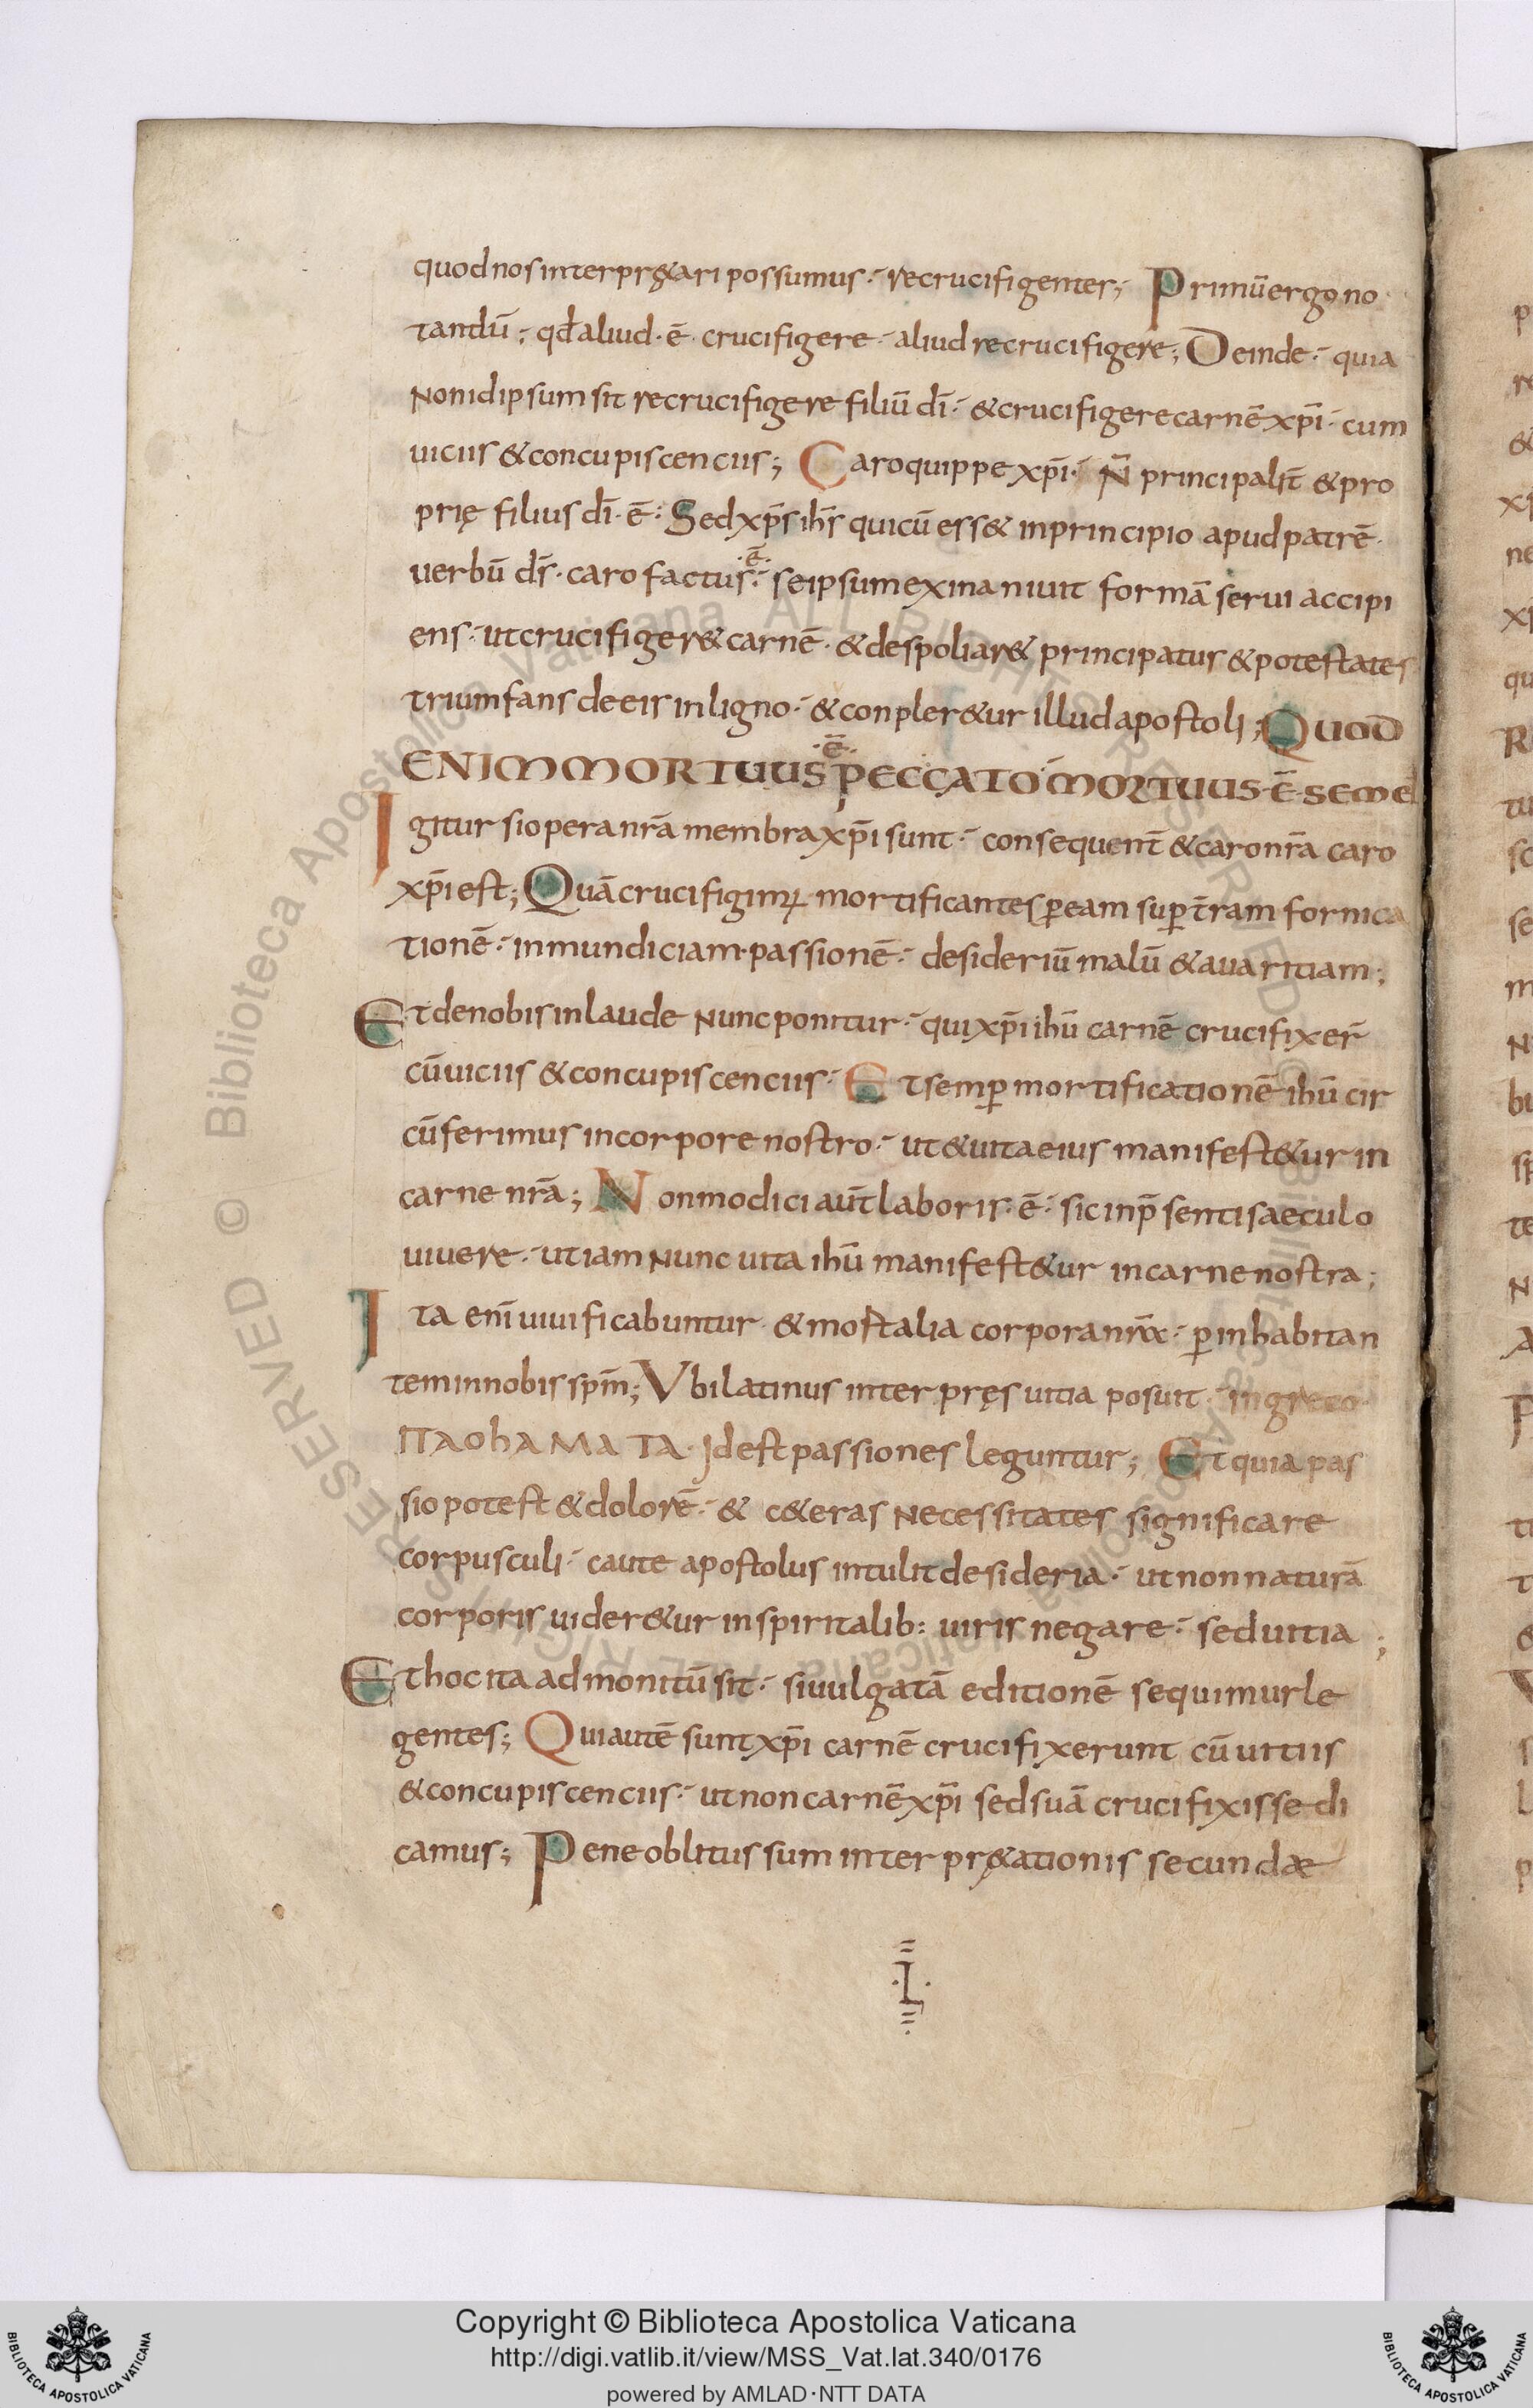 quod nos interpr&ari possumus· recrucifigentes; Primū ergo no
tandū; qđ aliud·ē· crucifigere· aliud recrucifigere; Deinde· quia
non id ipsum sit recrucifigere filiū dī· & crucifigere carnē xp̄i· cum
uiciis & concupiscenciis; Caro quippe xp̄i· N̄ principalit̄ & pro
prię filius dī·ē· Sed xp̄s ih̄s qui cū ess& in principio apud patrē·
uerbū dś· caro factus·ē· se ipsum exinaniuit formā serui accipi
ens· ut crucifiger& carnē· & despoliar& principatus & potestates
triumfans de eis in ligno· & conpler&ur illud apostoli; QUOD
ENIM MORTUUS·ē· PECCATO MORTUUS·Ē·SEMEL
Igitur si opera nr̄a membra xp̄i sunt· consequent̄ & caro nr̄a caro
xp̄i est; Quā crucifigimꝰ mortificantes ꝑ eam suꝑ t̄ram fornica
tionē· inmundiciam·passionē· desideriū malū & auaritiam;
Et de nobis in laude nunc ponitur· qui xp̄i ihū carnē crucifixer̄
cū uiciis & concupiscenciis· Et semꝑ mortificationē ihū cir
cūferimus in corpore nostro· ut & uita eius manifest&ur in
carne nr̄a; Non modici aut̄ laboris·ē· sic in p̄senti saeculo
uiuere· ut iam nunc uita ihū manifest&ur in carne nostra;
Ita enī uiuificabuntur & mortalia corpora nr̄a· ꝑ inhabitan
tem in nobis sp̄m; Vbi latinus interpręs uitia posuit· in greco·
ΠAOhAMATA· Id est passiones leguntur; Et quia pas
sio potest & dolorē· & c&eras necessitates significare
corpusculi· caute apostolus intulit desideria· ut non naturā
corporis uider&ur in spiritalib: uiris negare· sed uitia;
Et hoc ita admonitū sit· si uulgatā editionē sequimur le
gentes; Qui autē sunt xp̄i carnē crucifixerunt cū uitiis
& concupiscenciis· ut non carnē xp̄i sed suā crucifixisse di
camus; Pene oblitus sum interpr&ationis secundae
·L·
RESERVED © Biblioteca Apostolica Vaticana ALL RIGHTS RESERVED © Biblioteca Apostolica Vaticana ALL RIGHTS
Copyright © Biblioteca Apostolica Vaticana
http://digi.vatlib.it/view/MSS_Vat.lat.340/0176
powered by AMLAD·NTT DATA
BIBLIOTECA APOSTOLICA VATICANA
BIBLIOTECA APOSTOLICA VATICANA